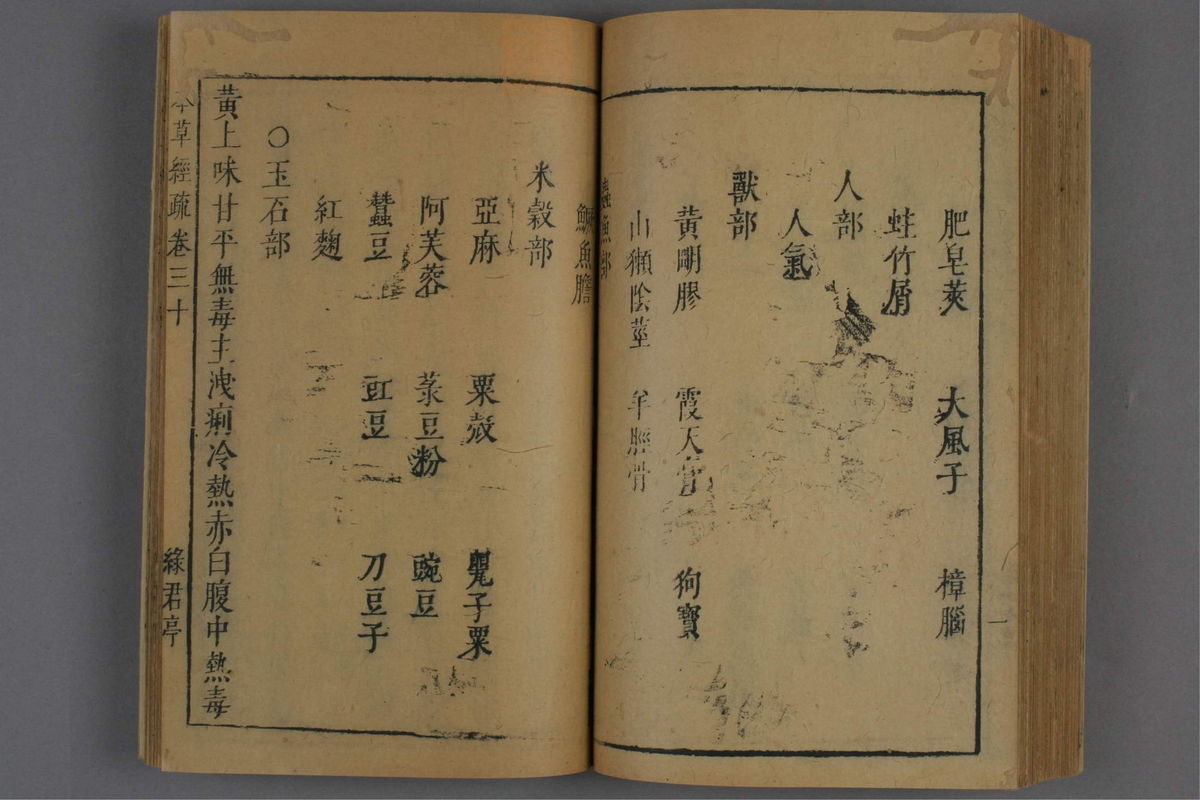 肥皂莢　大風子　樟腦
蛀竹屑
人部
人氣
獸部
黃明膠　霞天膏　狗寶
山獺陰莖　羊脛骨
蟲魚部
魚膽
米穀部
亞麻　粟殼　甖子粟
阿芙蓉　菉豆粉　豌豆
蠶豆　豇豆　刀豆子
紅麴
○玉石部
黃土味甘平無毒主洩痢冷熱赤白腹中熱毒
本草經疏　卷三十　綠君亭